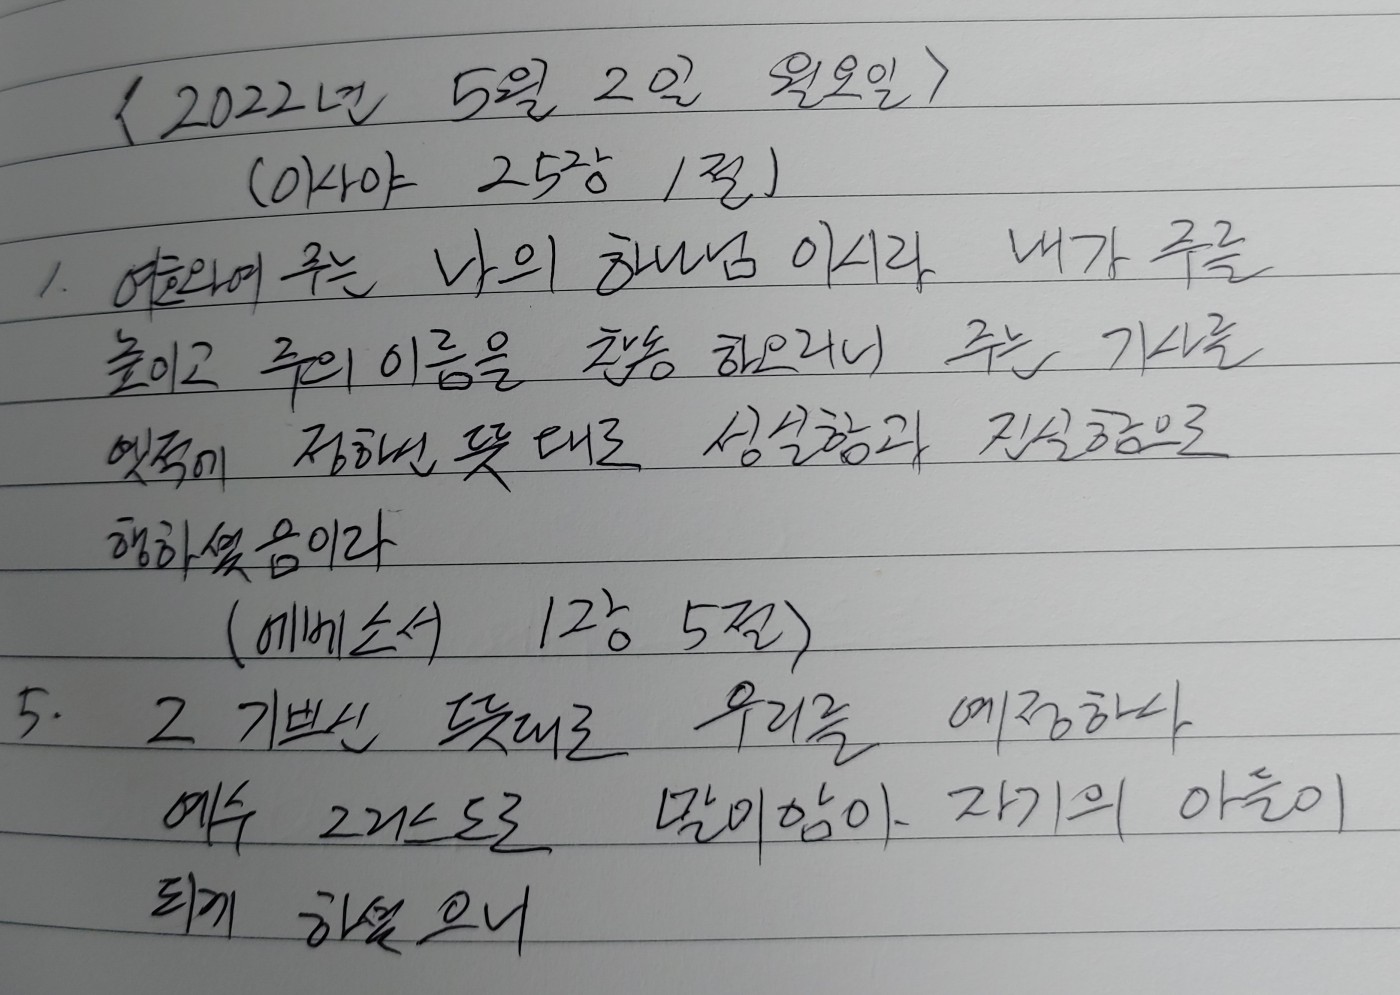 <2022년 5월 2일 월요일>
(이사야 25장 1절)
1. 여호와여 주는 나의 하나님 이시라 내가 주를
높이고 주의 이름을 찬송 하오리니 주는 기사를
옛적에 정하신 뜻 대로 성실함과 진실함으로
행하셨음이라
(에베소서 1장 5절)
5. 그 기쁘신 뜻대로 우리를 예정하사
예수 그리스도로 말미암아 자기의 아들이
되게 하셨으니